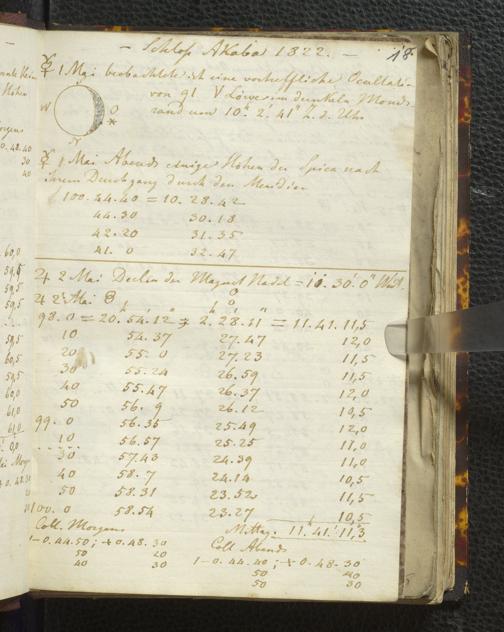 — Schloss Akaba 1822. —
18
☿ 1 Mai beobachtete ich eine vortreffliche Occultation
von 91 V Löwe im dunkeln Mond
rand um 10. 2. 41" n. d. Uhr
W
O
N
☿ 1 Mai Abends einige Höhen der Spica nach
ihrem Durchgang durch den Meridian
100. 44. 40 = 10. 28. 42
44. 30 30. 18
42. 20 31. 35
41. 0 32. 47
♃ 2 Mai Declin der Magnet Nadel = 10. 30. 0" West.
♃ 2 Mai
98. 0 = 20. 54. 12" = 2. 28. 11" = 11. 41. 11,5
10 54. 37 27. 47 12,0
20 55. 0 27. 23 11,5
30 55. 24 26. 59 11,5
40 55. 47 26. 37 12,0
50 56. 9 26. 12 10,5
99. 0 56. 35 25. 49 12,0
10 56. 57 25. 25 11,0
30 57. 43 24. 39 11,0
40 58. 7 24. 14 10,5
50 58. 31 23. 52 11,5
100. 0 58. 54 23. 27 10,5
Mittag. 11. 41. 11,3
Coll. Morgens
1 – 0. 44. 50; + 0. 48. 30
50 20
40 30
Coll Abends
1 – 0. 44. 40; + 0. 48. 30
50 40
50 30